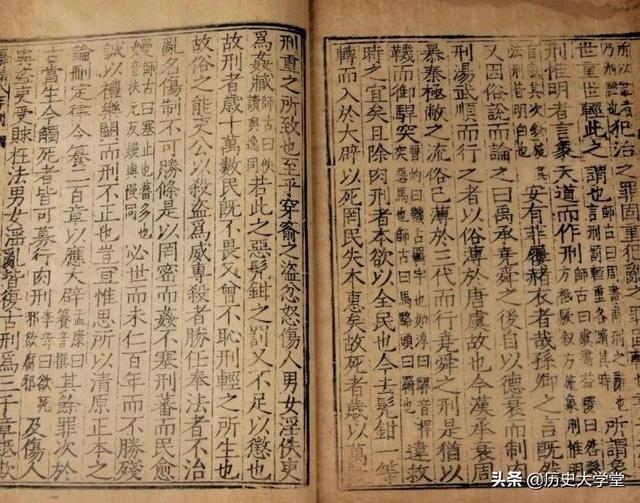 犯治之罪固重犯亂之
世重世輕此之謂也
刑惟明者言象天道而作刑
安有菲屨赭衣者哉孫卿之言既然
又因俗說而論之曰禹承堯舜之後自以德衰而制
刑湯武順而行之者以俗薄於唐虞故也今漢承衰周
暴秦極敝之流俗已薄於三代而行堯舜之刑是猶以
鞿而御駻突 違救
時之宜矣且除肉刑者本欲以全民也今去髡鉗一等
轉而入於大辟以死罔民失本惠矣故死者歲以萬
刑重之所致也至乎穿窬之盜忿怒傷人男女淫佚吏
為姦臧師古曰佚讀與逸同若此之惡髡鉗之罰又不足以懲也
故刑者歲十萬數民既不畏又曾不恥刑輕之所生也
故俗之能吏公以殺盜為威專殺者勝任奉法者不治
亂名傷制不可勝條是以罔密而姦不塞刑蕃而民愈
嫚師古曰塞止也蕃多也音扶元反嫚與慢同必世而未仁百年而不勝殘
誠以禮樂闕而刑不正也豈宜惟思所以清原正本之
論刪定律令籑二百章以應大辟孟康曰籑音撰其餘罪次於
古當生今觸死者皆可募行肉刑李奇曰欲死邪欲腐邪及傷人
與盜吏受賕枉法男女淫亂皆復古刑為三千章
头条 @历史大学堂